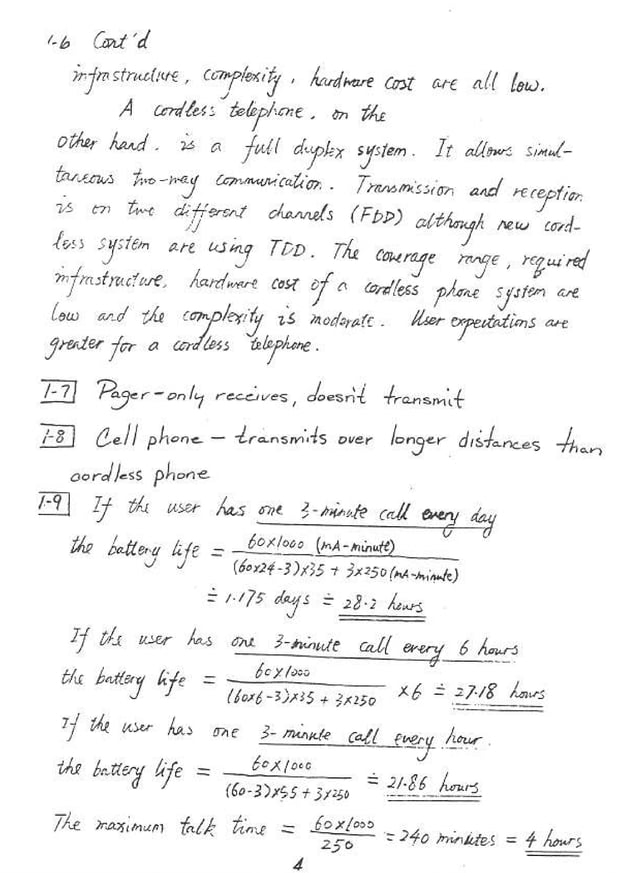 1-6 Cont'd
infrastructure, complexity, hardware cost are all low.
A cordless telephone, on the
other hand, is a full duplex system. It allows simul-
taneous two-way communication. Transmission and reception
is on two different channels (FDD) although new cord-
less system are using TDD. The coverage range, required
infrastructure, hardware cost of a cordless phone system are
low and the complexity is moderate. User expectations are
greater for a cordless telephone.
1-7 Pager-only receives, doesn't transmit
1-8 Cell phone - transmits over longer distances than
cordless phone
1-9 If the user has one 3-minute call every day
the battery life = 60x1000 (mA-minute) / (60x24-3)x35 + 3x250 (mA-minute)
≐ 1.175 days ≐ 28.2 hours
If the user has one 3-minute call every 6 hours
the battery life = 60x1000 / (60x6-3)x35 + 3x250 x6 ≐ 27.18 hours
If the user has one 3-minute call every hour.
the battery life = 60x1000 / (60-3)x55 + 3x250 ≐ 21.86 hours
The maximum talk time = 60x1000 / 250 = 240 minutes = 4 hours
4